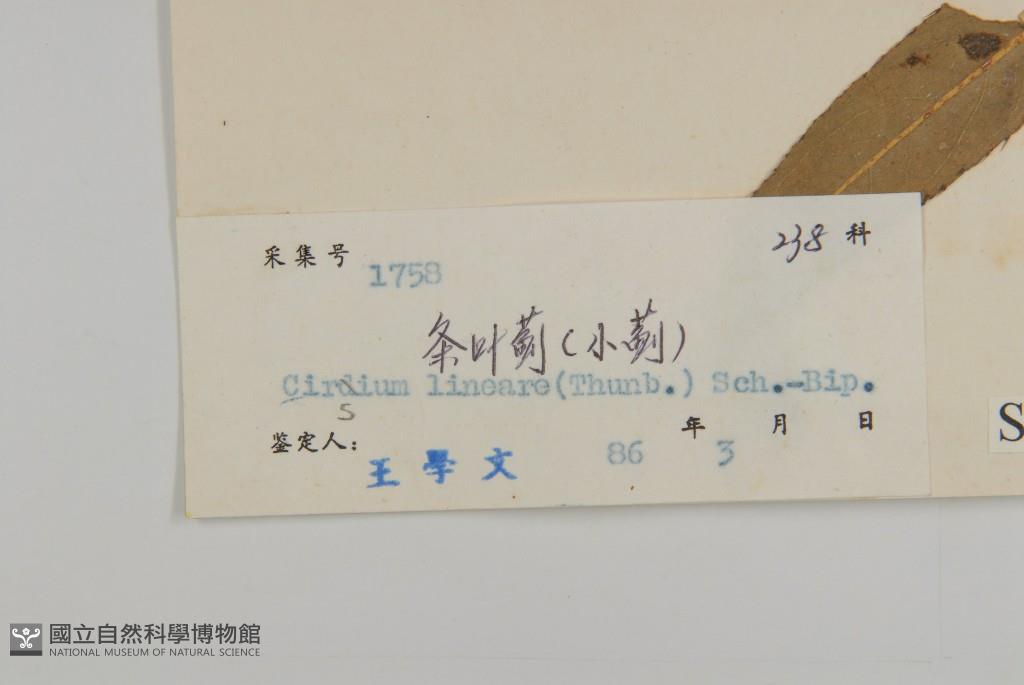 采集号 1758 238 科
条叶蓟(小蓟)
Cirdium lineare(Thunb.) Sch.-Bip.
s
鉴定人: 王學文 86 年 3 月 日
S
國立自然科學博物館
NATIONAL MUSEUM OF NATURAL SCIENCE